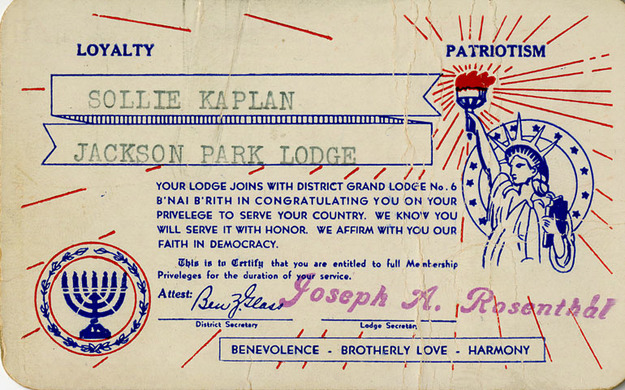 LOYALTY
PATRIOTISM
SOLLIE KAPLAN
JACKSON PARK LODGE
YOUR LODGE JOINS WITH DISTRICT GRAND LODGE No. 6
B'NAI B'RITH IN CONGRATULATING YOU ON YOUR
PRIVELEGE TO SERVE YOUR COUNTRY. WE KNOW YOU
WILL SERVE IT WITH HONOR. WE AFFIRM WITH YOU OUR
FAITH IN DEMOCRACY.
This is to Certify that you are entitled to full Membership
Priveleges for the duration of your service.
Attest: Ben Z. Glass Joseph A. Rosenthal
District Secretary Lodge Secretary
BENEVOLENCE - BROTHERLY LOVE - HARMONY